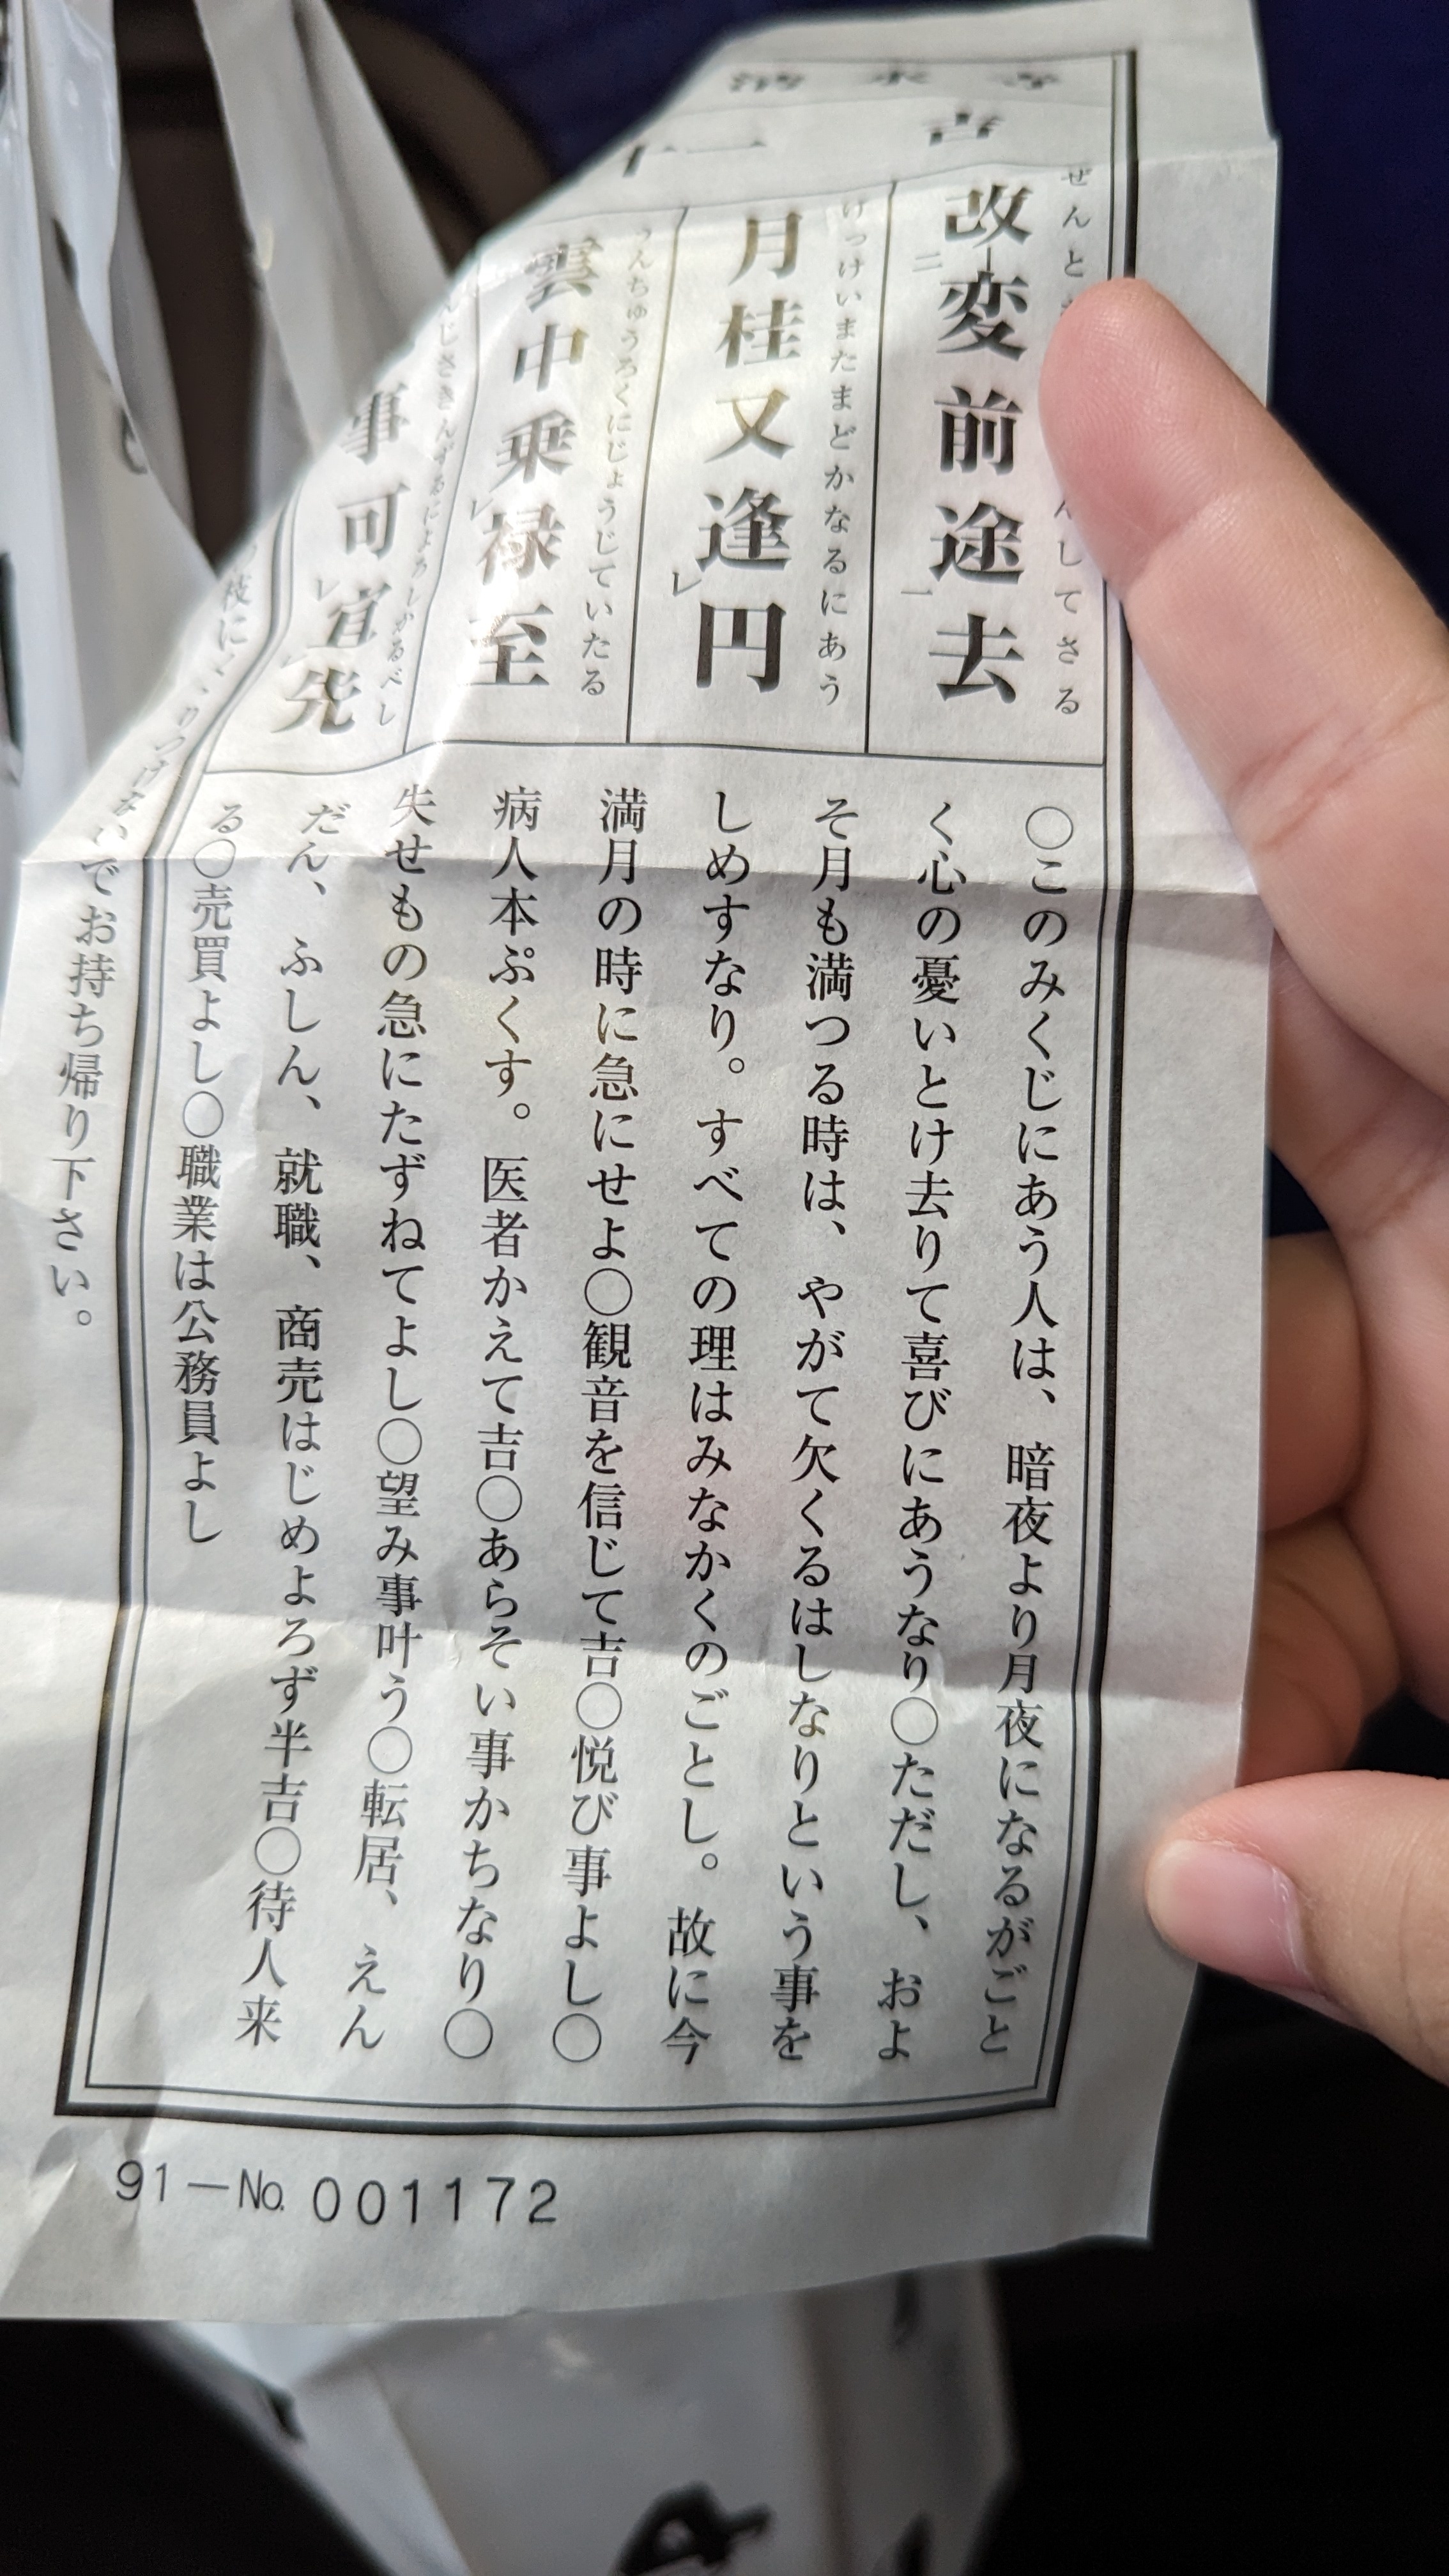 寺水清
吉
十一
ぜんと
んしてさる
改変前途去
二
一
けっけいまたまどかなるにあう
月桂又逢円
レ
うんちゅうろくにじょうじていたる
雲中乗禄至
レ
事可宜先
レ
○このみくじにあう人は、暗夜より月夜になるがごと
く心の憂いとけ去りて喜びにあうなり○ただし、およ
そ月も満つる時は、やがて欠くるはしなりという事を
しめすなり。すべての理はみなかくのごとし。故に今
満月の時に急にせよ○観音を信じて吉○悦び事よし○
病人本ぷくす。医者かえて吉○あらそい事かちなり○
失せもの急にたずねてよし○望み事叶う○転居、えん
だん、ふしん、就職、商売はじめよろず半吉○待人来
る○売買よし○職業は公務員よし
枝に
いでお持ち帰り下さい。
91－No. 001172